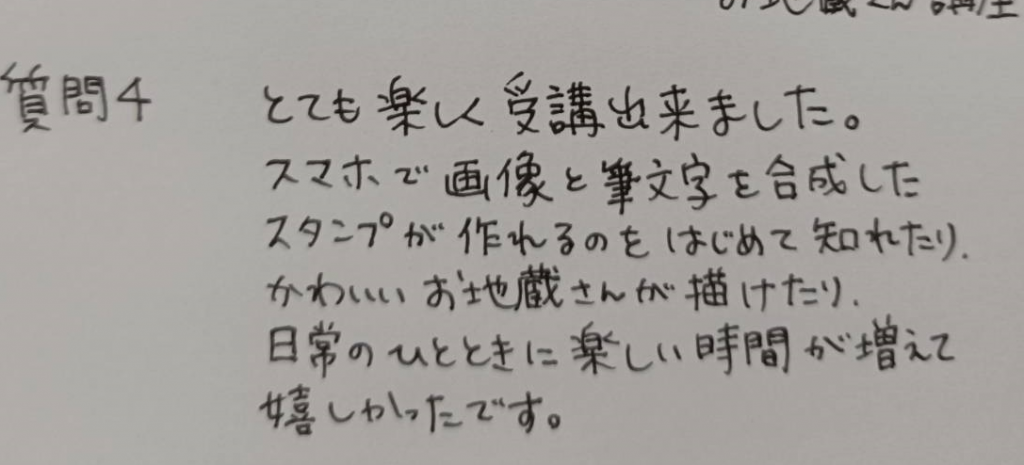 お地蔵さん講座
質問4
とても楽しく受講出来ました。
スマホで画像と筆文字を合成した
スタンプが作れるのをはじめて知れたり、
かわいいお地蔵さんが描けたり、
日常のひとときに楽しい時間が増えて
嬉しかったです。